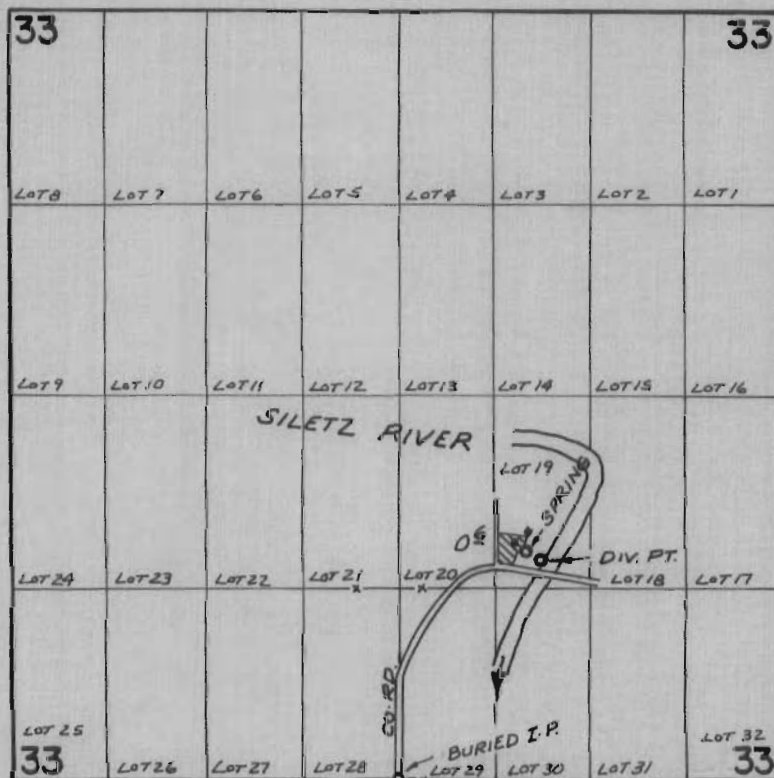 33 33
LOT 8 LOT 7 LOT 6 LOT 5 LOT 4 LOT 3 LOT 2 LOT 1
LOT 9 LOT 10 LOT 11 LOT 12 LOT 13 LOT 14 LOT 15 LOT 16
SILETZ RIVER
LOT 19
SPRING
DIV. PT.
LOT 24 LOT 23 LOT 22 LOT 21 LOT 20 LOT 18 LOT 17
CO. RD.
BURIED I.P.
LOT 25 LOT 32
33 LOT 26 LOT 27 LOT 28 LOT 29 LOT 30 LOT 31 33